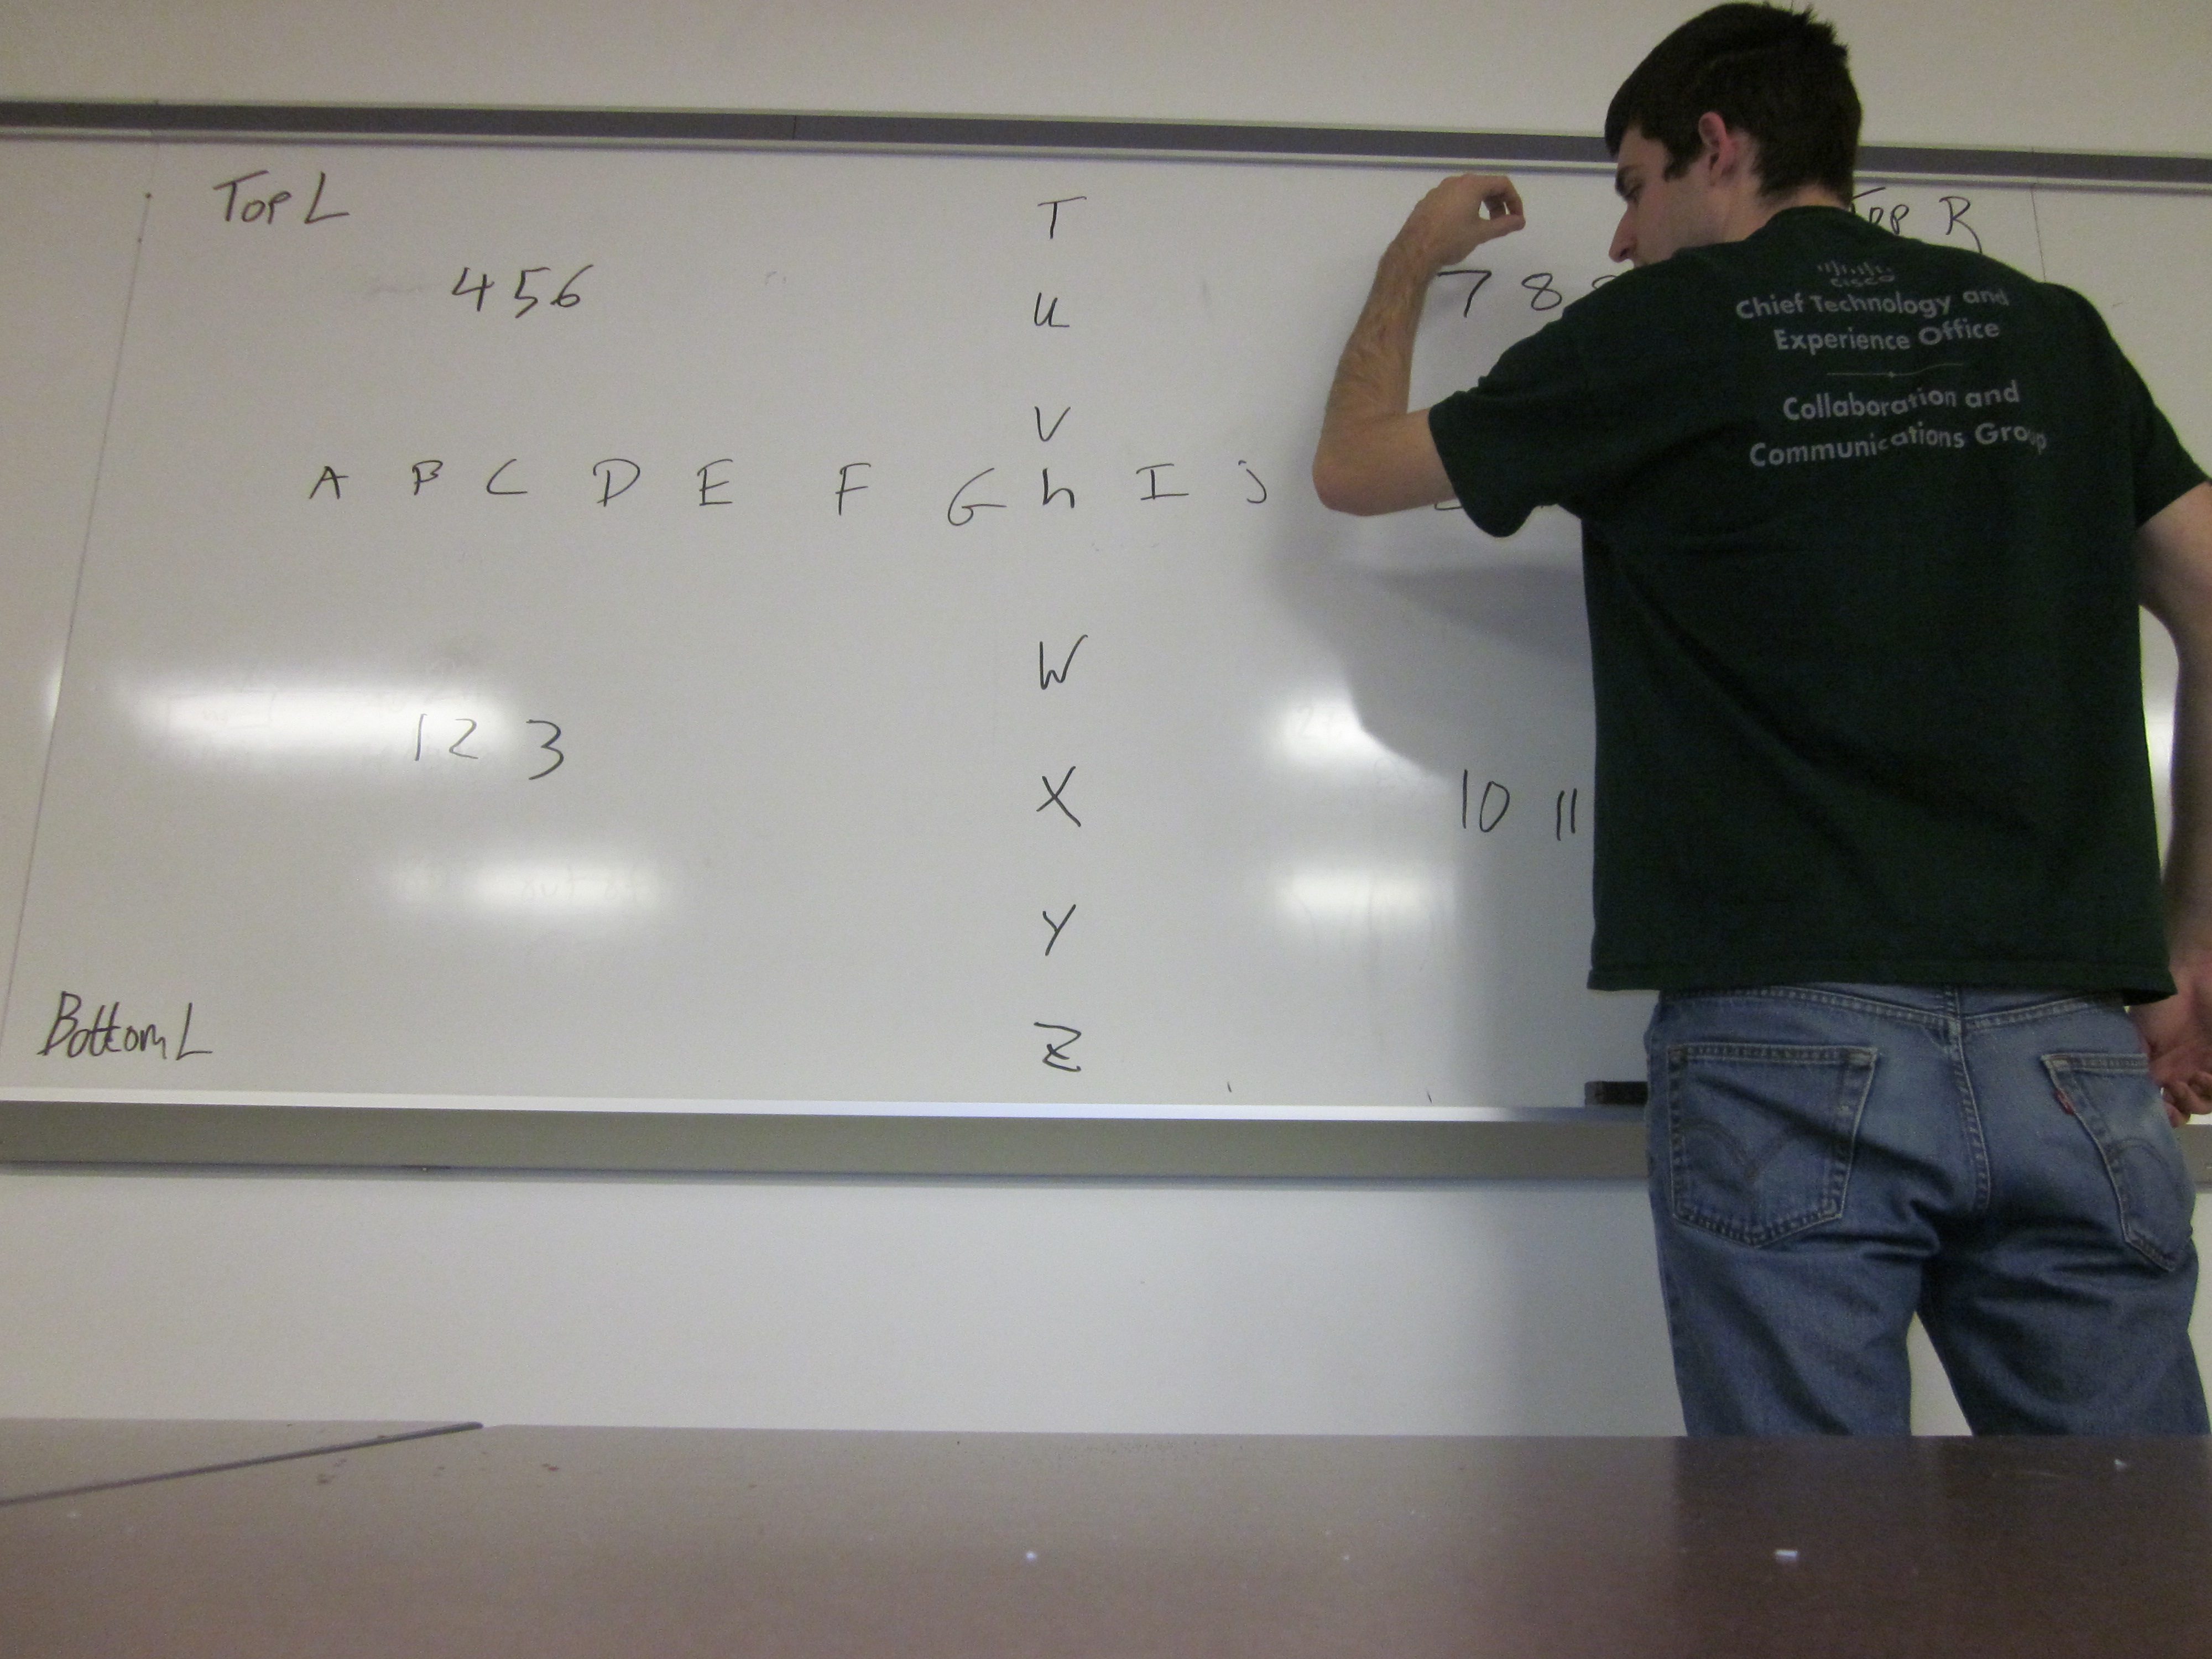 Top L
Top R
T
4 5 6
7 8
U
V
A B C D E F G h I j
W
1 2 3
X
10 11
Y
Bottom L
Z
CISCO
Chief Technology and
Experience Office
Collaboration and
Communications Group